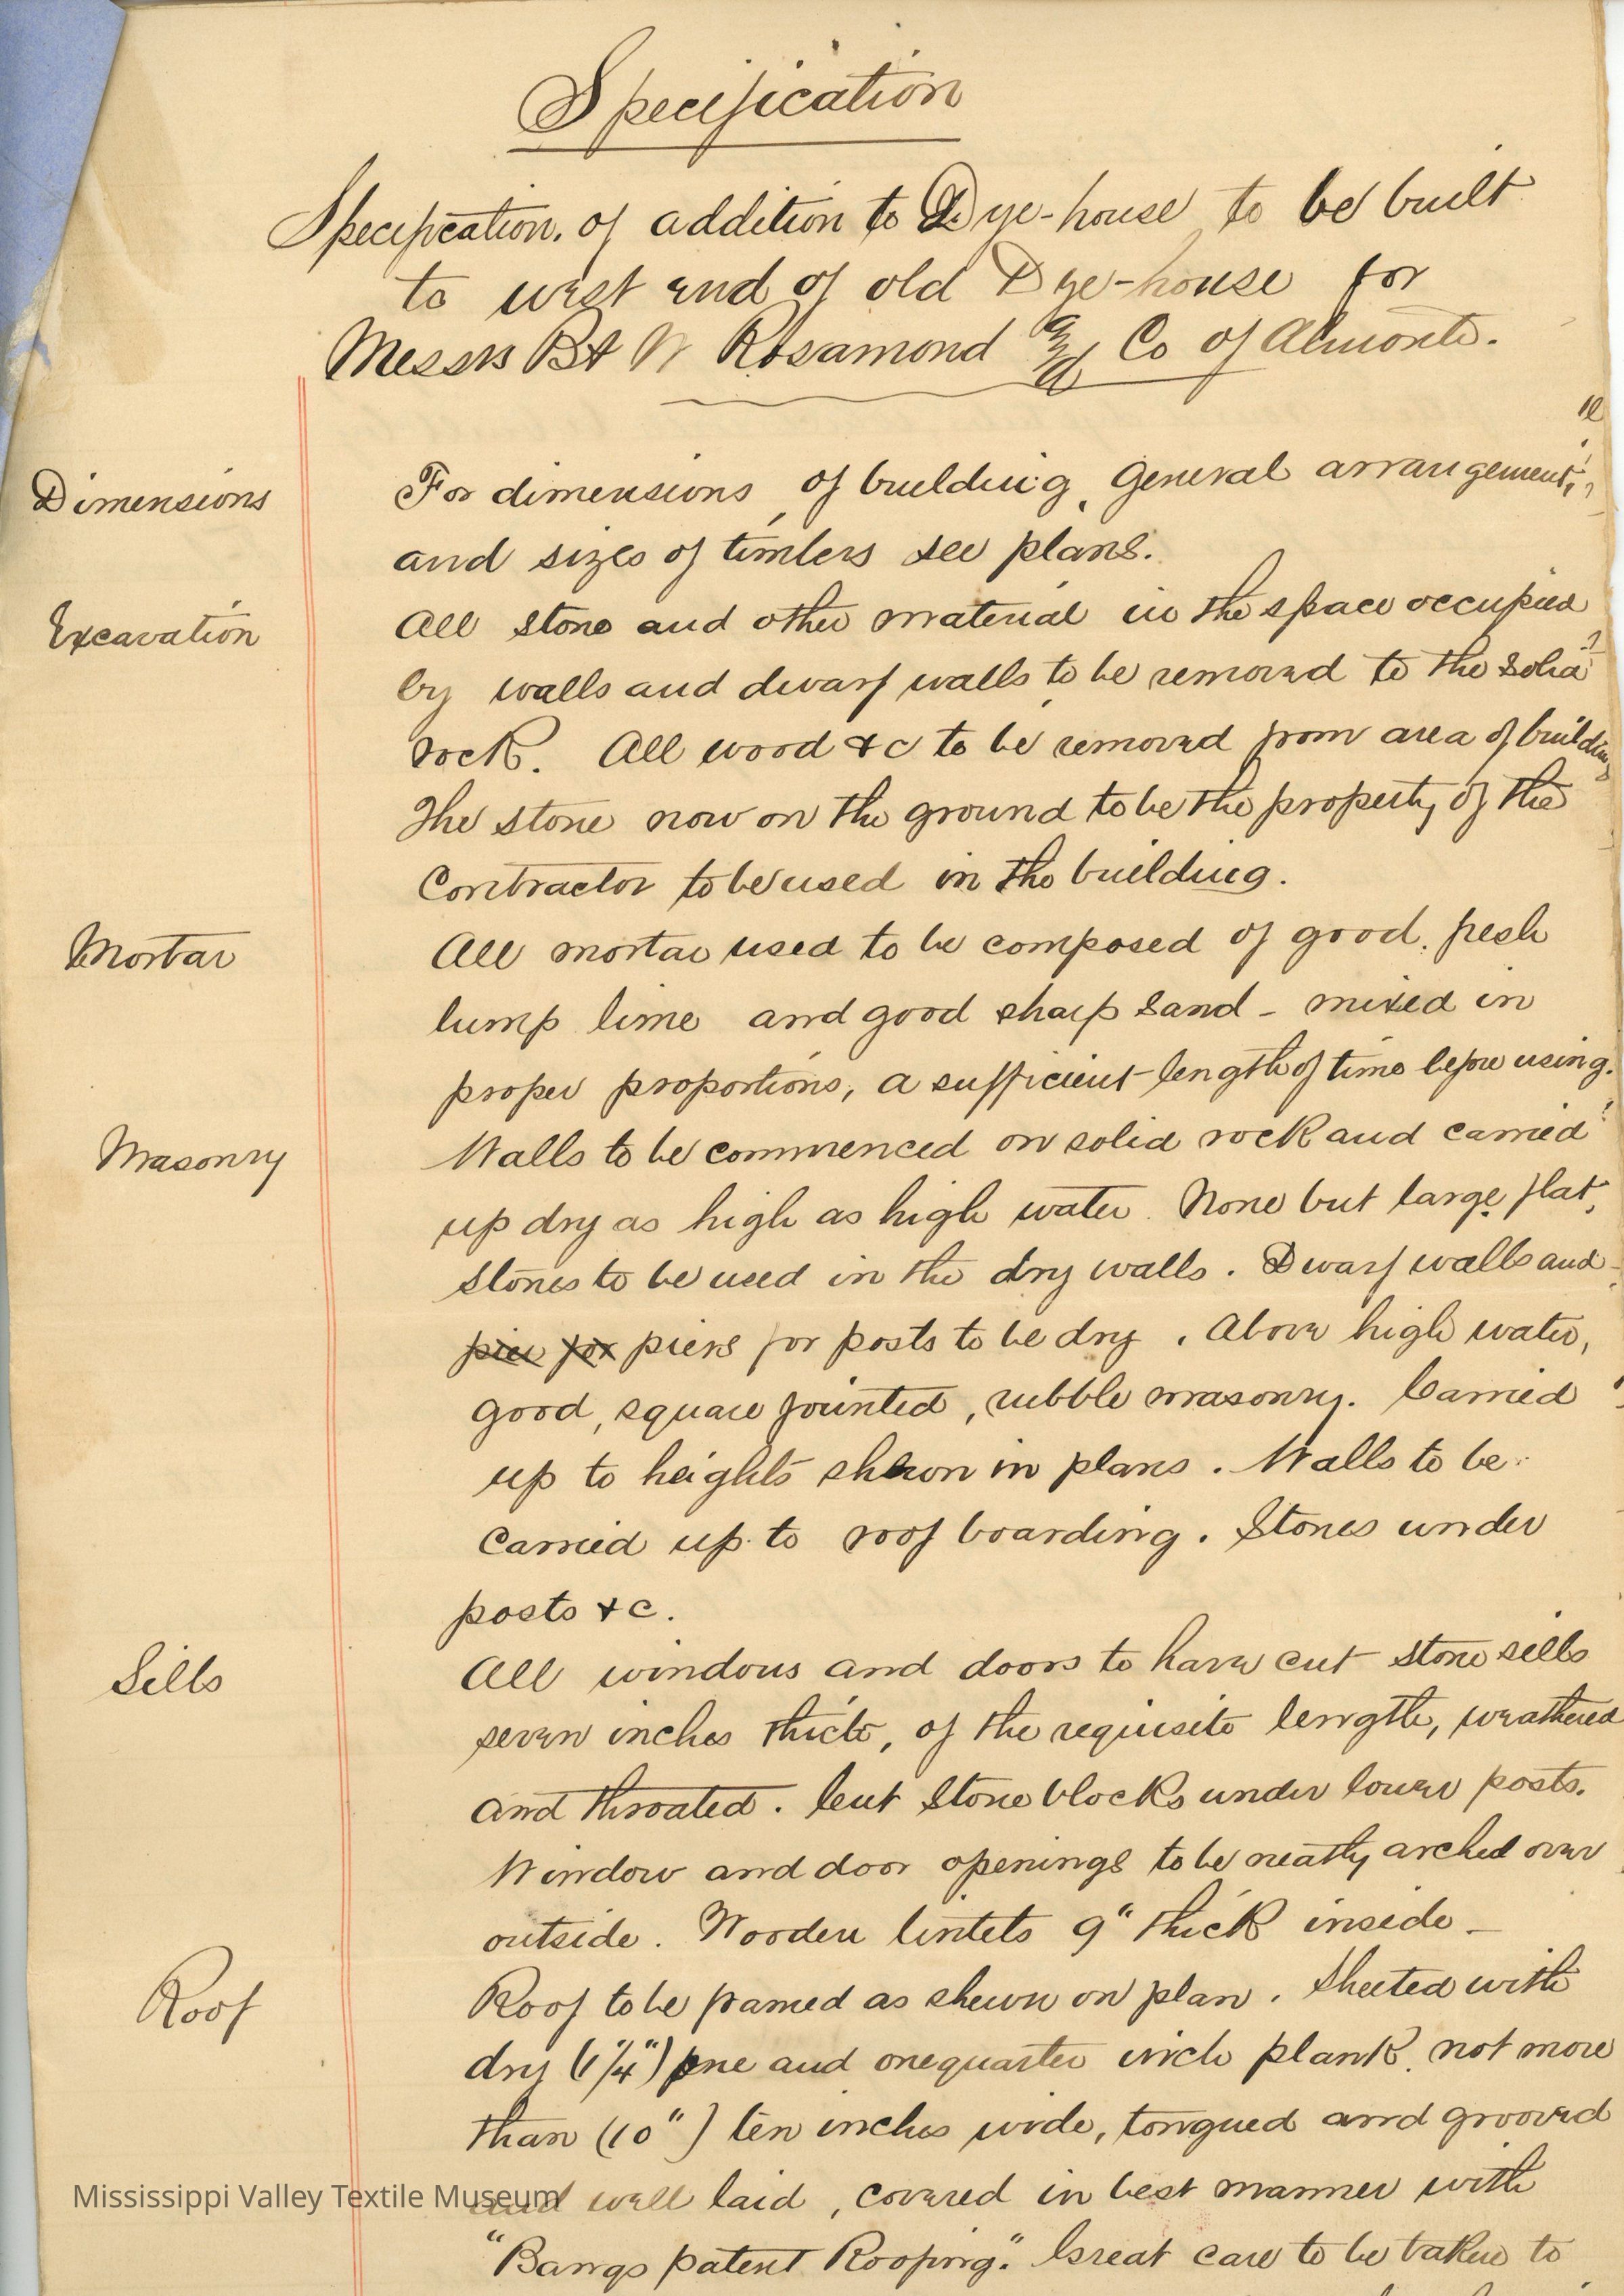 Specification
Specification. of addition to Dye-house to be built
to west end of old Dye-house for
Messrs B & W Rosamond & Co of Almonte.
Dimensions
For dimensions of building, General arrangement,
and sizes of timbers see plans.
Excavation
All stone and other material in the space occupied
by walls and dwarf walls to be removed to the solid
rock. All wood &c to be removed from area of building
The stone now on the ground to be the property of the
Contractor to be used in the building.
Mortar
All mortar used to be composed of good. fresh
lump lime and good sharp sand - mixed in
proper proportions, a sufficient length of time before using.
Masonry
Walls to be commenced on solid rock and carried
up dry as high as high water. None but large, flat,
stones to be used in the dry walls. Dwarf walls and
pier for piers for posts to be dry. Above high water,
good, square jointed, rubble masonry. Carried
up to heights shewn in plans. Walls to be
carried up to roof boarding. Stones under
posts &c.
Sills
All windows and doors to have cut stone sills
seven inches thick, of the requisite length, weathered
and throated. Cut Stone blocks under lower posts.
Window and door openings to be neatly arched over
outside. Wooden lintels 9" thick inside -
Roof
Roof to be framed as shewn on plan. Sheeted with
dry (1¼") one and onequarter inch plank, not more
than (10") ten inches wide, tongued and grooved
and well laid, covered in best manner with
"Bangs patent Roofing". Great care to be taken to
Mississippi Valley Textile Museum